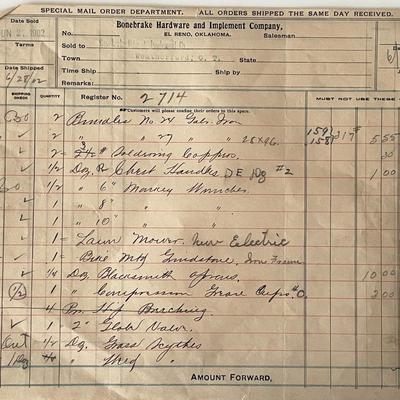 SPECIAL MAIL ORDER DEPARTMENT. ALL ORDERS SHIPPED THE SAME DAY RECEIVED.
Date Sold
Bonebrake Hardware and Implement Company,
1902
No.
EL RENO, OKLAHOMA.
Salesman
Terms
To
Town
Weatherford, O. T.
6/28/02
Time Ship
Ship Via
Remarks:
SHIPPING CHECK
QUANTITY
Register No. 2714
MUST NOT USE THESE
Customers will please confine their orders to this space.
Bo 2 Bundles No. 24 Galv. Iron
2 " " 27 " 28x96. 159# 158# 317# 5 55
2 3# Soldering Coppers. 30
1/2 Dz. Pr Chest Handles D E #2 1 00
1/2 " 6" Monkey Wrenches
1 " 8" "
1 " 10" "
1 Lawn Mower New Electric
1 Grindstone, Iron Frame
1/4 Dz Blacksmith Aprons 10 00
(1/2) 1 " Compression Grease Cups #0. 2 00
4 Pr. Hip
1 2" Globe Valve.
Out 1/2 Dz. Grass Scythes
AMOUNT FORWARD,